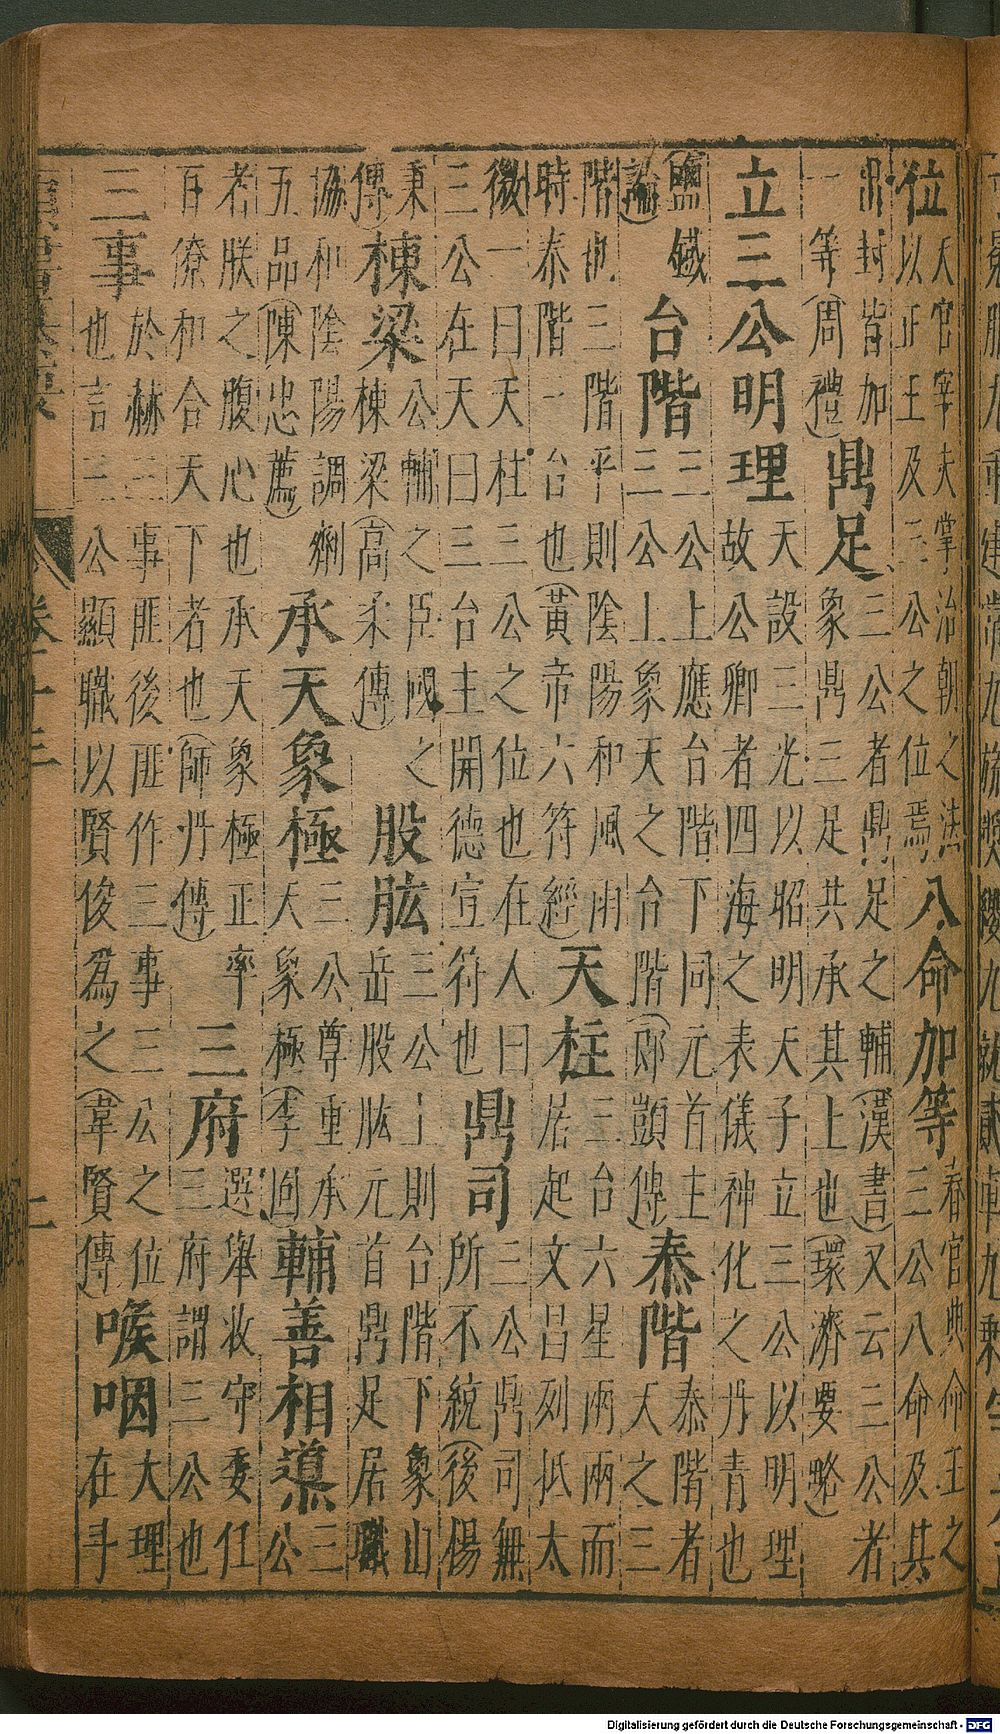 位天官宰夫掌治朝之法以正王及三公之位焉八命加等春官典命王之三公八命及其
出封皆加一等(周禮)鼎足三公者鼎足之輔(漢書)又云三公者象鼎三足共承其上也(環濟要略)
立三公明理天設三光以昭明天子立三公以明理故公卿者四海之表儀神化之丹青也
(鹽鐵論)台階三公上應台階下同元首主三公上象天之台階(郎顗傳)泰階泰階者天之三
階也三階平則陰陽和風雨時泰階一台也(黃帝六符經)天柱三台六星兩兩而居起文昌列抵太
微一曰天柱三公之位也在人曰三公在天曰三台主開德宣符也鼎司三公鼎司無所不統(後楊
秉傳)棟梁公輔之臣國之棟梁(高柔傳)股肱三公上則台階下象山岳股肱元首鼎足居職
協和陰陽調劑五品(陳忠薦)承天象極三公尊重承天象極(李固)輔善相導三公
者朕之腹心也承天象極正率百僚和合天下者也(師丹傳)三府選舉牧守委任三府謂三公也
三事於赫三事匪後匪作三事三公之位也言三公顯職以賢俊為之(韋賢傳)喉咽大理在斗
Digitalisierung gefördert durch die Deutsche Forschungsgemeinschaft - DFG